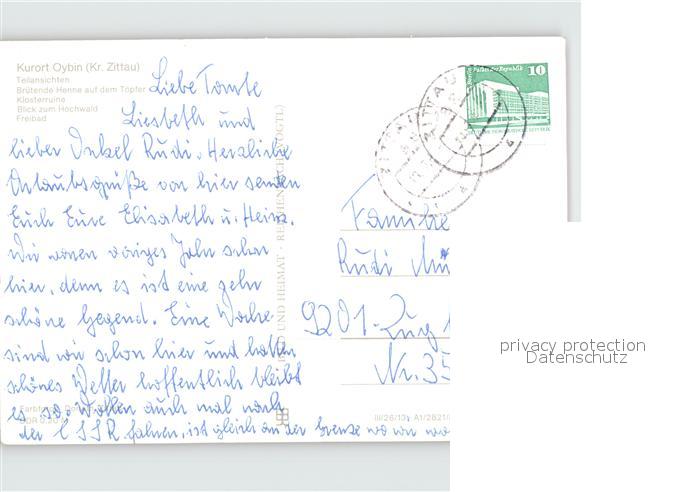 Kurort Oybin (Kr. Zittau)
Teilansichten
Brütende Henne auf dem Töpfer
Klosterruine
Blick zum Hochwald
Freibad
Liebe Tante
Liesbeth und
lieber Onkel Rudi. Herzliche
Urlaubsgrüße von hier senden
Euch Eure Elisabeth u. Heinz.
Wir waren voriges Jahr schon
hier, denn es ist eine sehr
schöne Gegend. Eine Woche
sind wir schon hier und hatten
schönes Wetter hoffentlich bleibt
es so. Wollen auch mal nach
der CSSR fahren, ist gleich an der Grenze wo wir
BILD UND HEIMAT · REICHENBACH (VOGTL)
DDR 0,20
III/26/13 A1/2821/
10
Palast der Republik
ZITTAU
ZITTAU
Familie
Rudi
9201-Zug
Nr. 35
privacy protection
Datenschutz